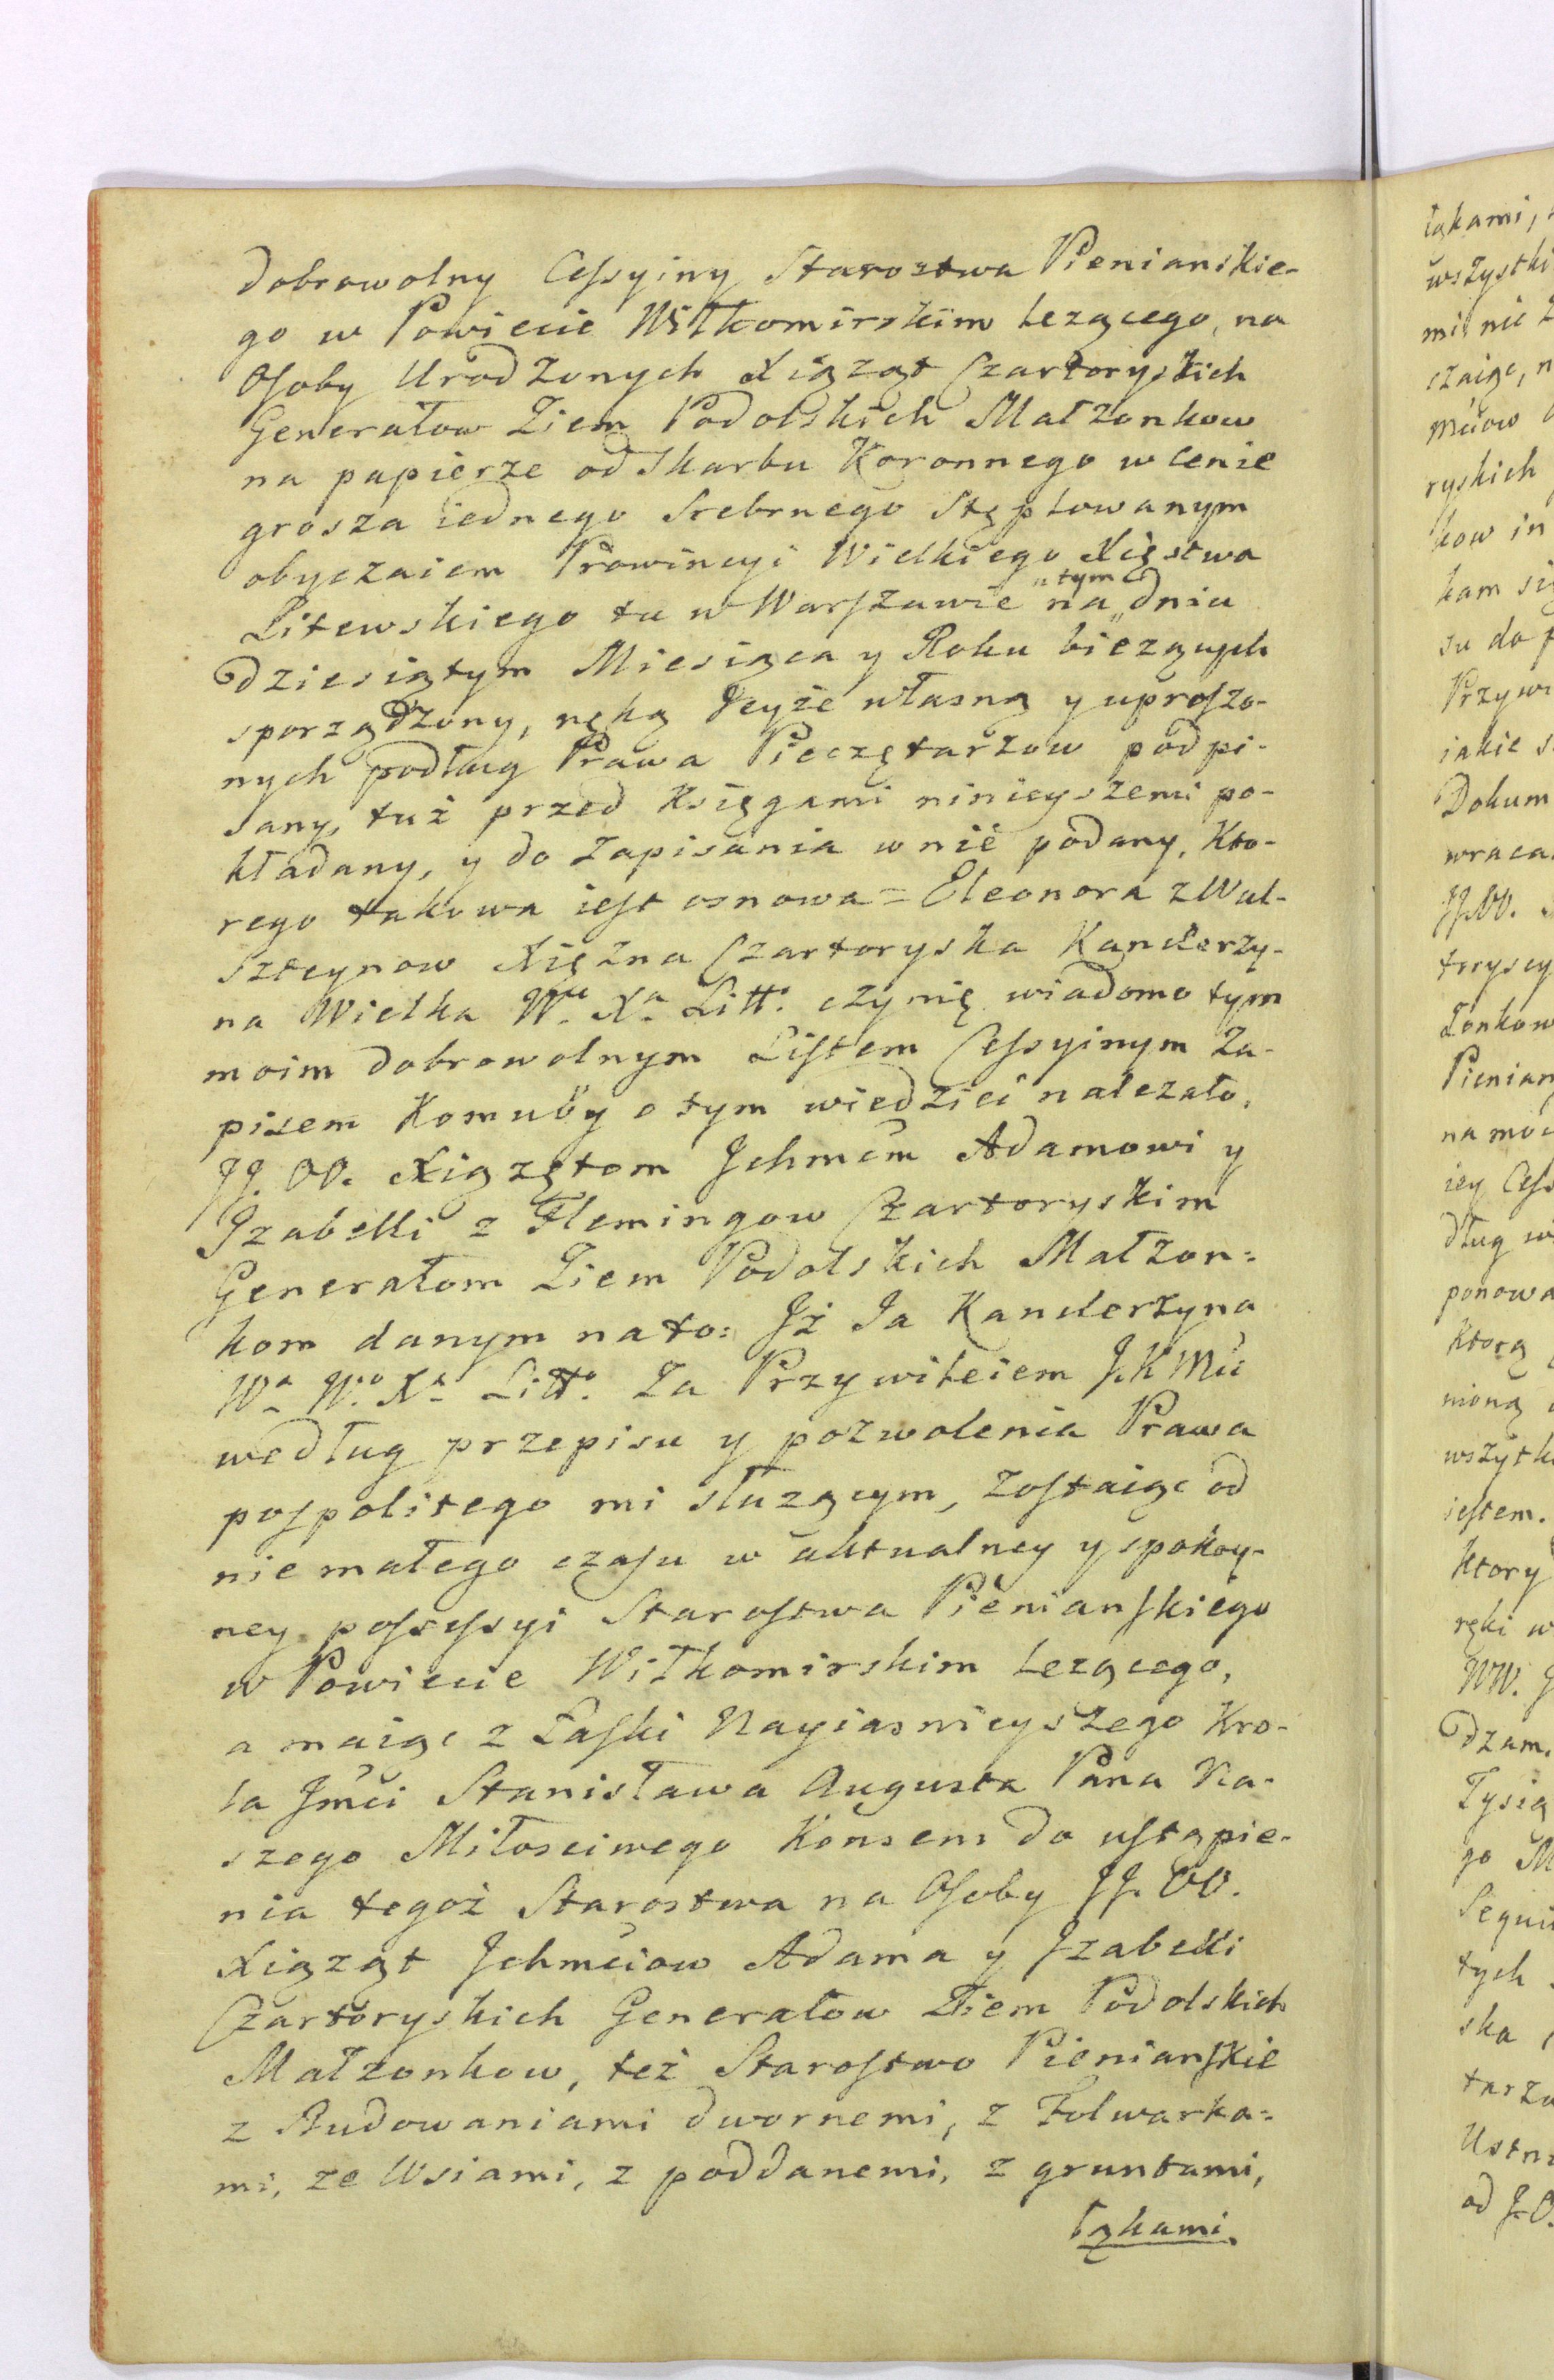 dobrowolny Cessyiny Starostwa Pienianskie-
go w Powiecie Wiłkomirskim lezącego, na
Osoby Urodzonych Xiąząt Czartoryskich
Generałow Ziem Podolskich Małzonkow
na papierze od Skarbu Koronnego w cenie
grosza iednego Srebrnego Stęplowanym
obyczaiem Prowincyi Wielkiego Xięstwa
Litewskiego tu w Warszawie na "tym dniu
dziesiątym Miesiąca y Roku biezących
sporządzony, ręką Jeyże własną y uproszo-
nych podług Prawa Pieczętarzow podpi-
sany, tuż przed Księgami ninieyszemi po-
kładany, y do Zapisania w nie podany, Kto-
rego takowa iest osnowa = Eleonora z Wal-
sztcynow Xięzna Czartoryska Kanclerzy-
na Wielka Wgo Xa Litto czynię wiadomo tym
moim dobrowolnym Listem Cessyinym Za-
pisem Komuby o tym wiedzieć nalezało,
JJ. OO. Xiązętom Ichmćm Adamowi y
Izabelli z Flemingow Czartoryskim
Generałom Ziem Podolskich Małzon=
kom danym na to: Iż Ja Kanclerzyna
Wa Wo Xa Litto Za Przywileiem J.K Mći
według przepisu y pozwolenia Prawa
pospolitego mi słuzącym, Zostaiąc od
nie małego czasu w aktualney y spokoy-
ney possessyi Starostwa Pienianskiego
w Powiecie Wiłkomirskim lezącego,
a maiąc z Łaski Nayiasnieyszego Kro-
la Jmći Stanisława Augusta Pana Na-
szego Miłosciwego Konsens do ustąpie-
nia tegoż Starostwa na Osoby JJ. OO.
Xiąząt Ichmćiow Adama y Izabelli
Czartoryskich Generałow Ziem Podolskich
Małzonkow, też Starostwo Pienianskie
z Budowaniami dwornemi, z Folwarka=
mi, ze Wsiami, z poddanemi, z gruntami,
Łąkami
łąkami,
wszystki
mi nic
czaiąc, n
Mćiow
ryskich
kow in
kam się
su do p
Przywi
iakie s
Dokum
wraca
JJ.OO.
toryscy
Zonkow
Pienian
na moc
iey Cess
dług
ponowa
Ktorą
nioną
wszytk
iestem.
Ktory
ręki w
WW. J
dzam.
Tysią
go M
Sequi
tych
ska
tarzo
Ustn
od J.O.